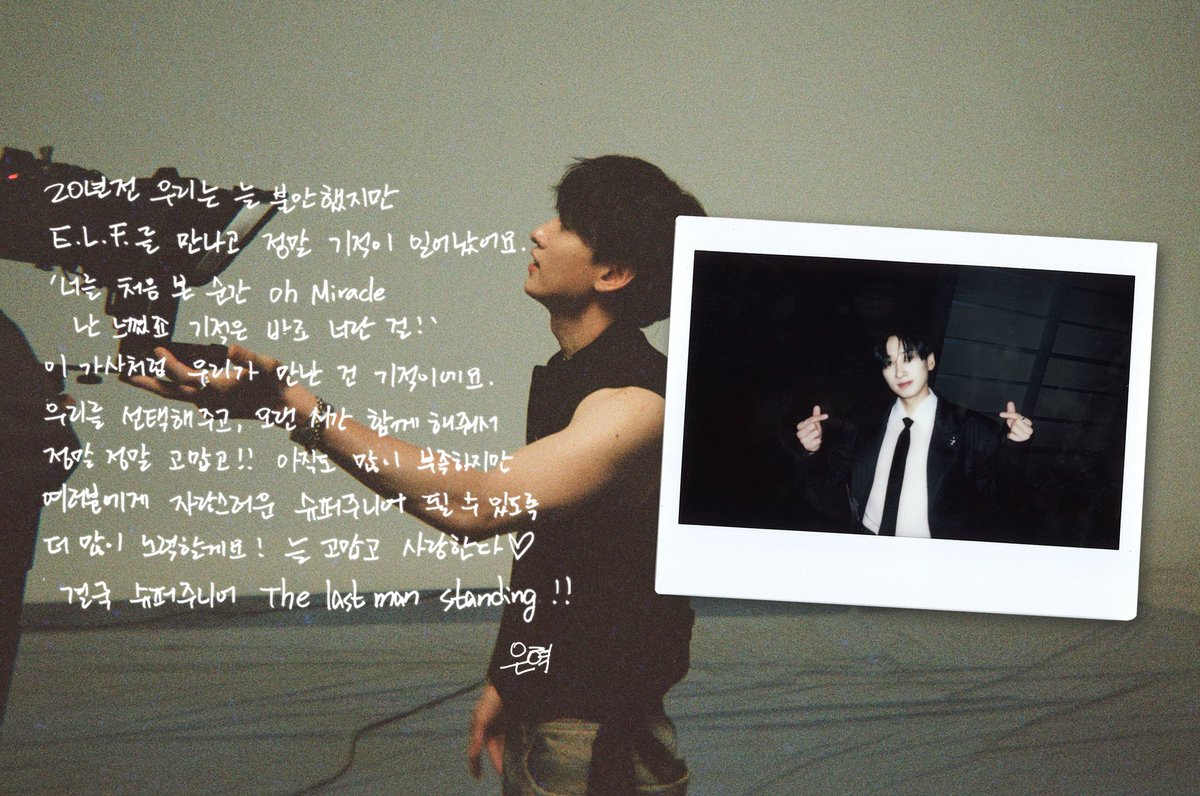 20년전 우리는 늘 불안했지만
E.L.F.를 만나고 정말 기적이 일어났어요.
'너를 처음 본 순간 oh Miracle
난 느꼈죠 기적은 바로 너란 걸!'
이 가사처럼 우리가 만난 건 기적이에요.
우리를 선택해주고, 오랜 시간 함께 해줘서
정말 정말 고맙고!! 아직도 많이 부족하지만
여러분에게 자랑스러운 슈퍼주니어 될 수 있도록
더 많이 노력할게요! 늘 고맙고 사랑한다♡
결국 슈퍼주니어 The last man standing !!
은혁